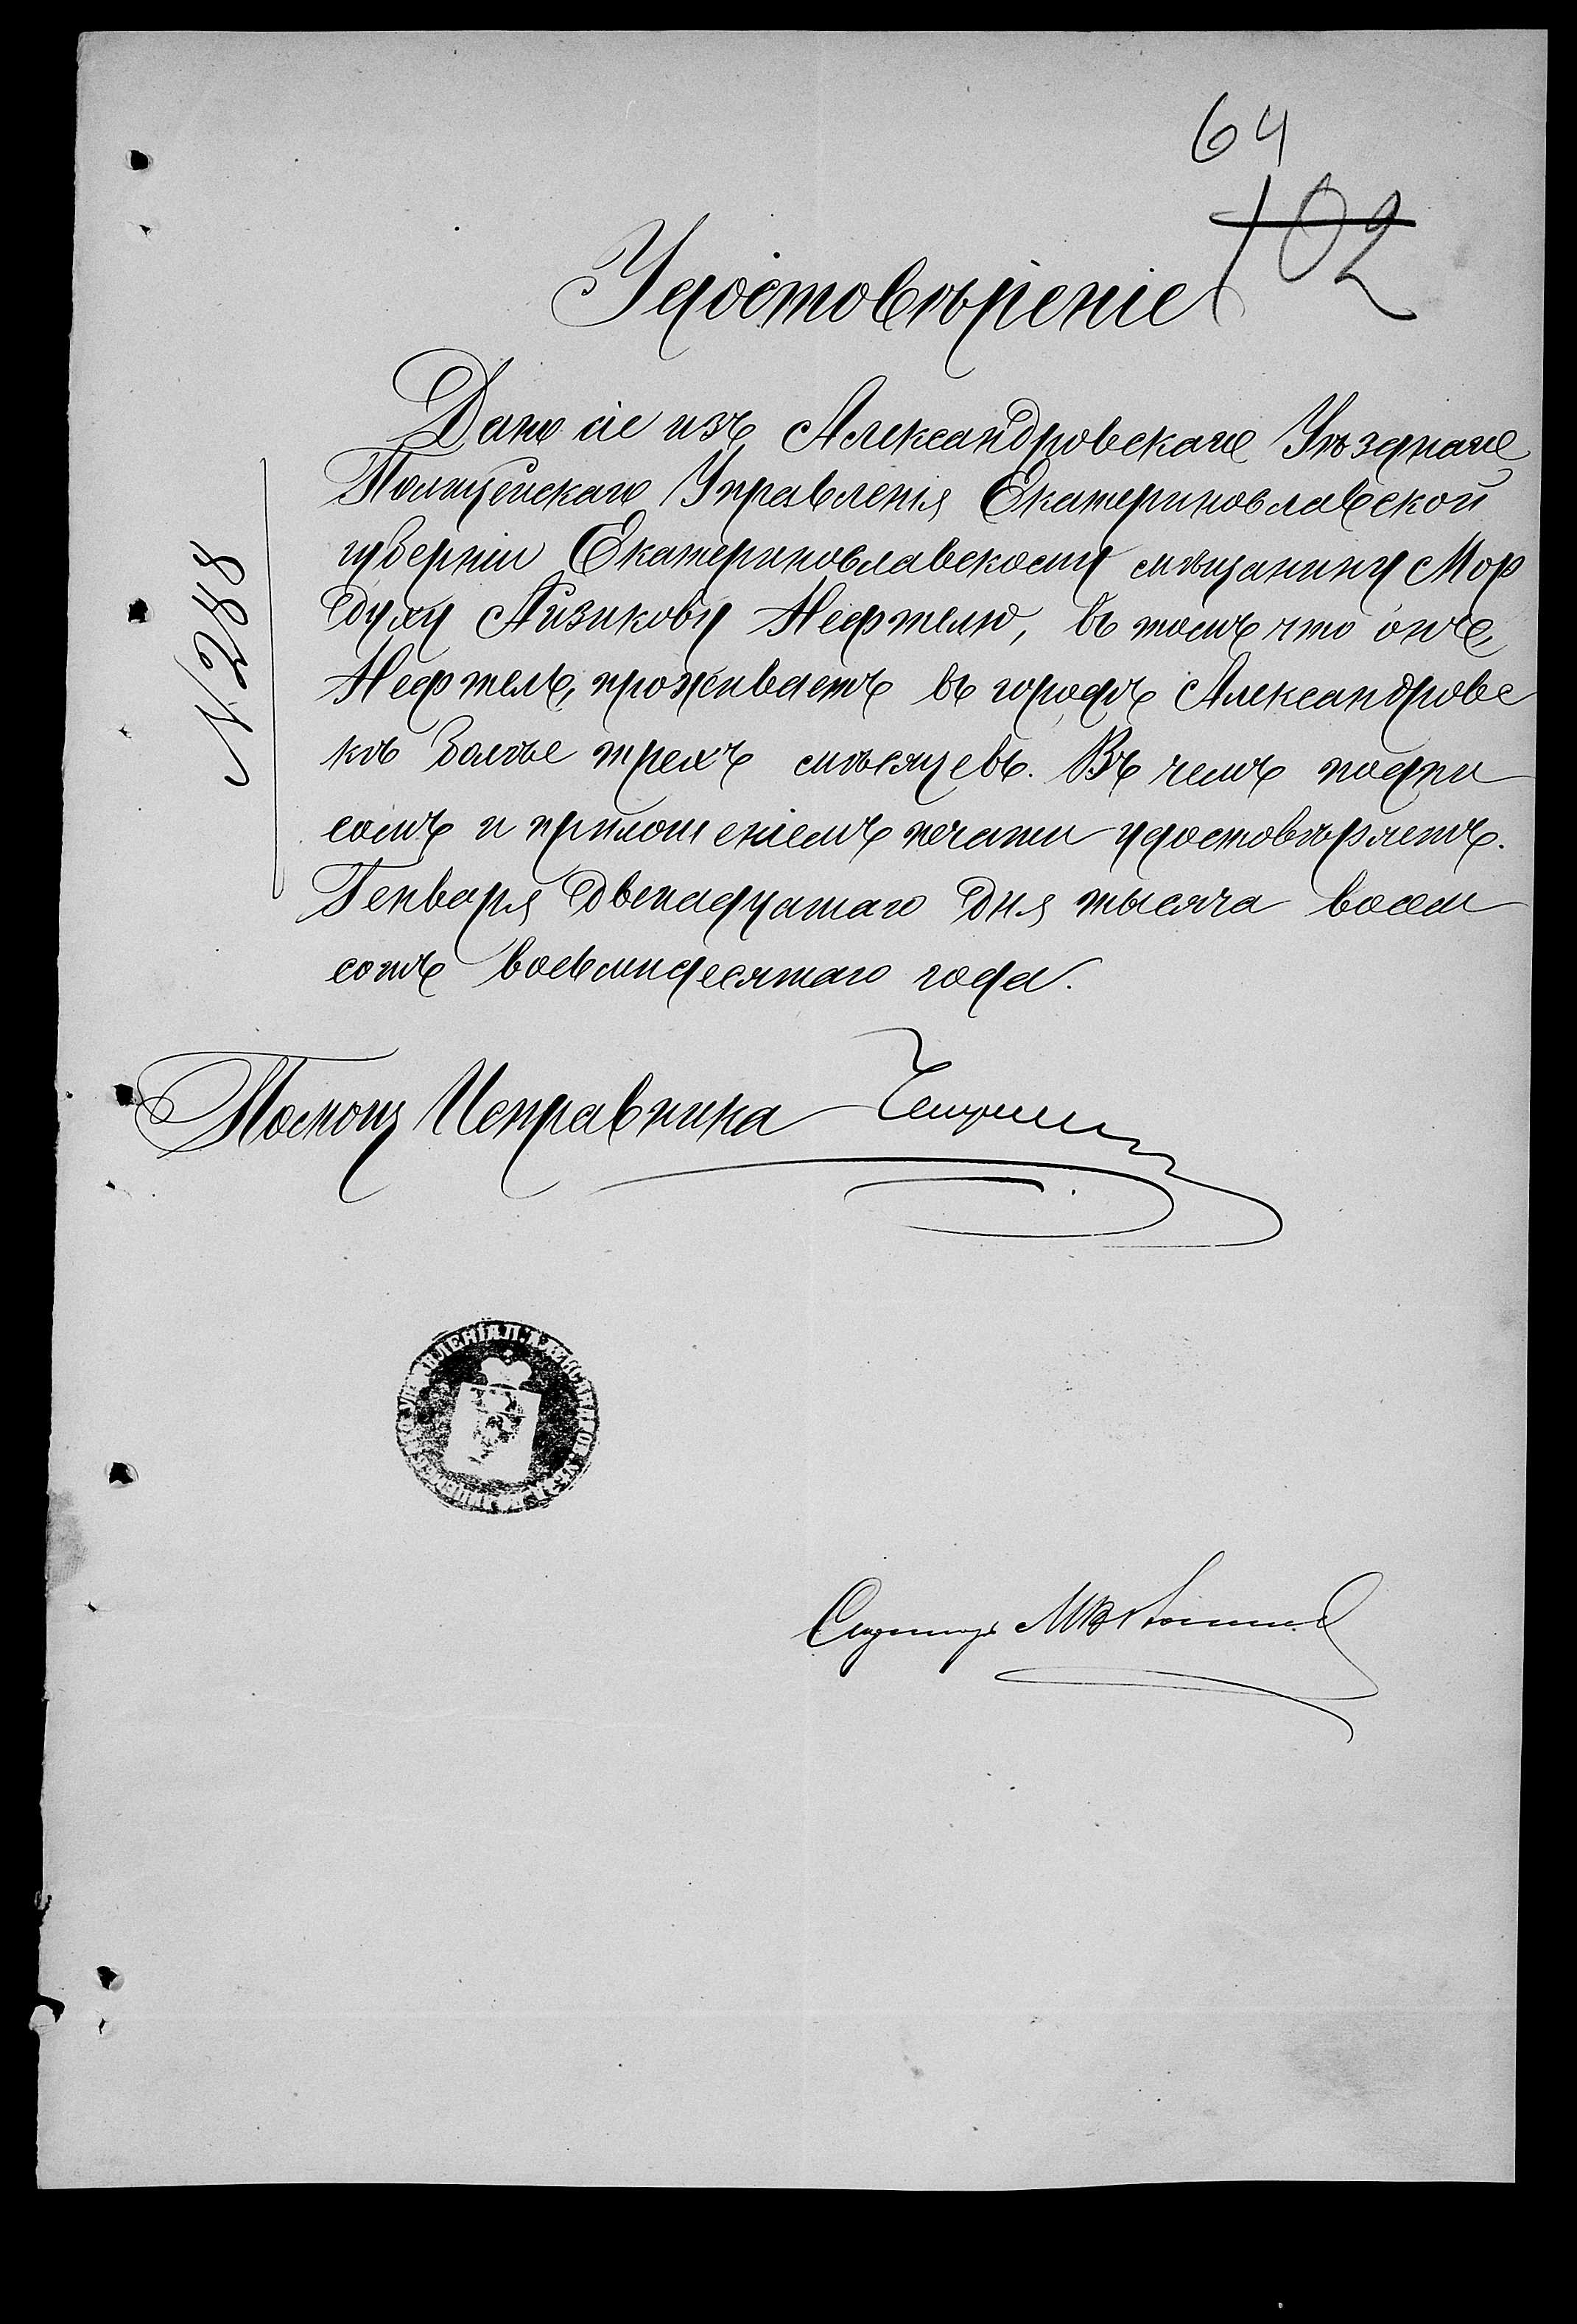 64
102
Удостовѣреніе
Дано сіе изъ Александровскаго Уѣзднаго
Полицейскаго Управленія Екатеринославской
губерніи Екатеринославскому мѣщанину Мор
духу Айзикову Нефтелю, въ томъ что онъ,
Нефтель, проживаетъ въ городѣ Александровс
кѣ болѣе трехъ мѣсяцевъ. Въ чемъ подпи
сомъ и приложеніемъ печати удостовѣряетъ.
Генваря двенадцатаго дня тысяча восем
сотъ восьмидесятаго года.
N 288
Помощ Исправника